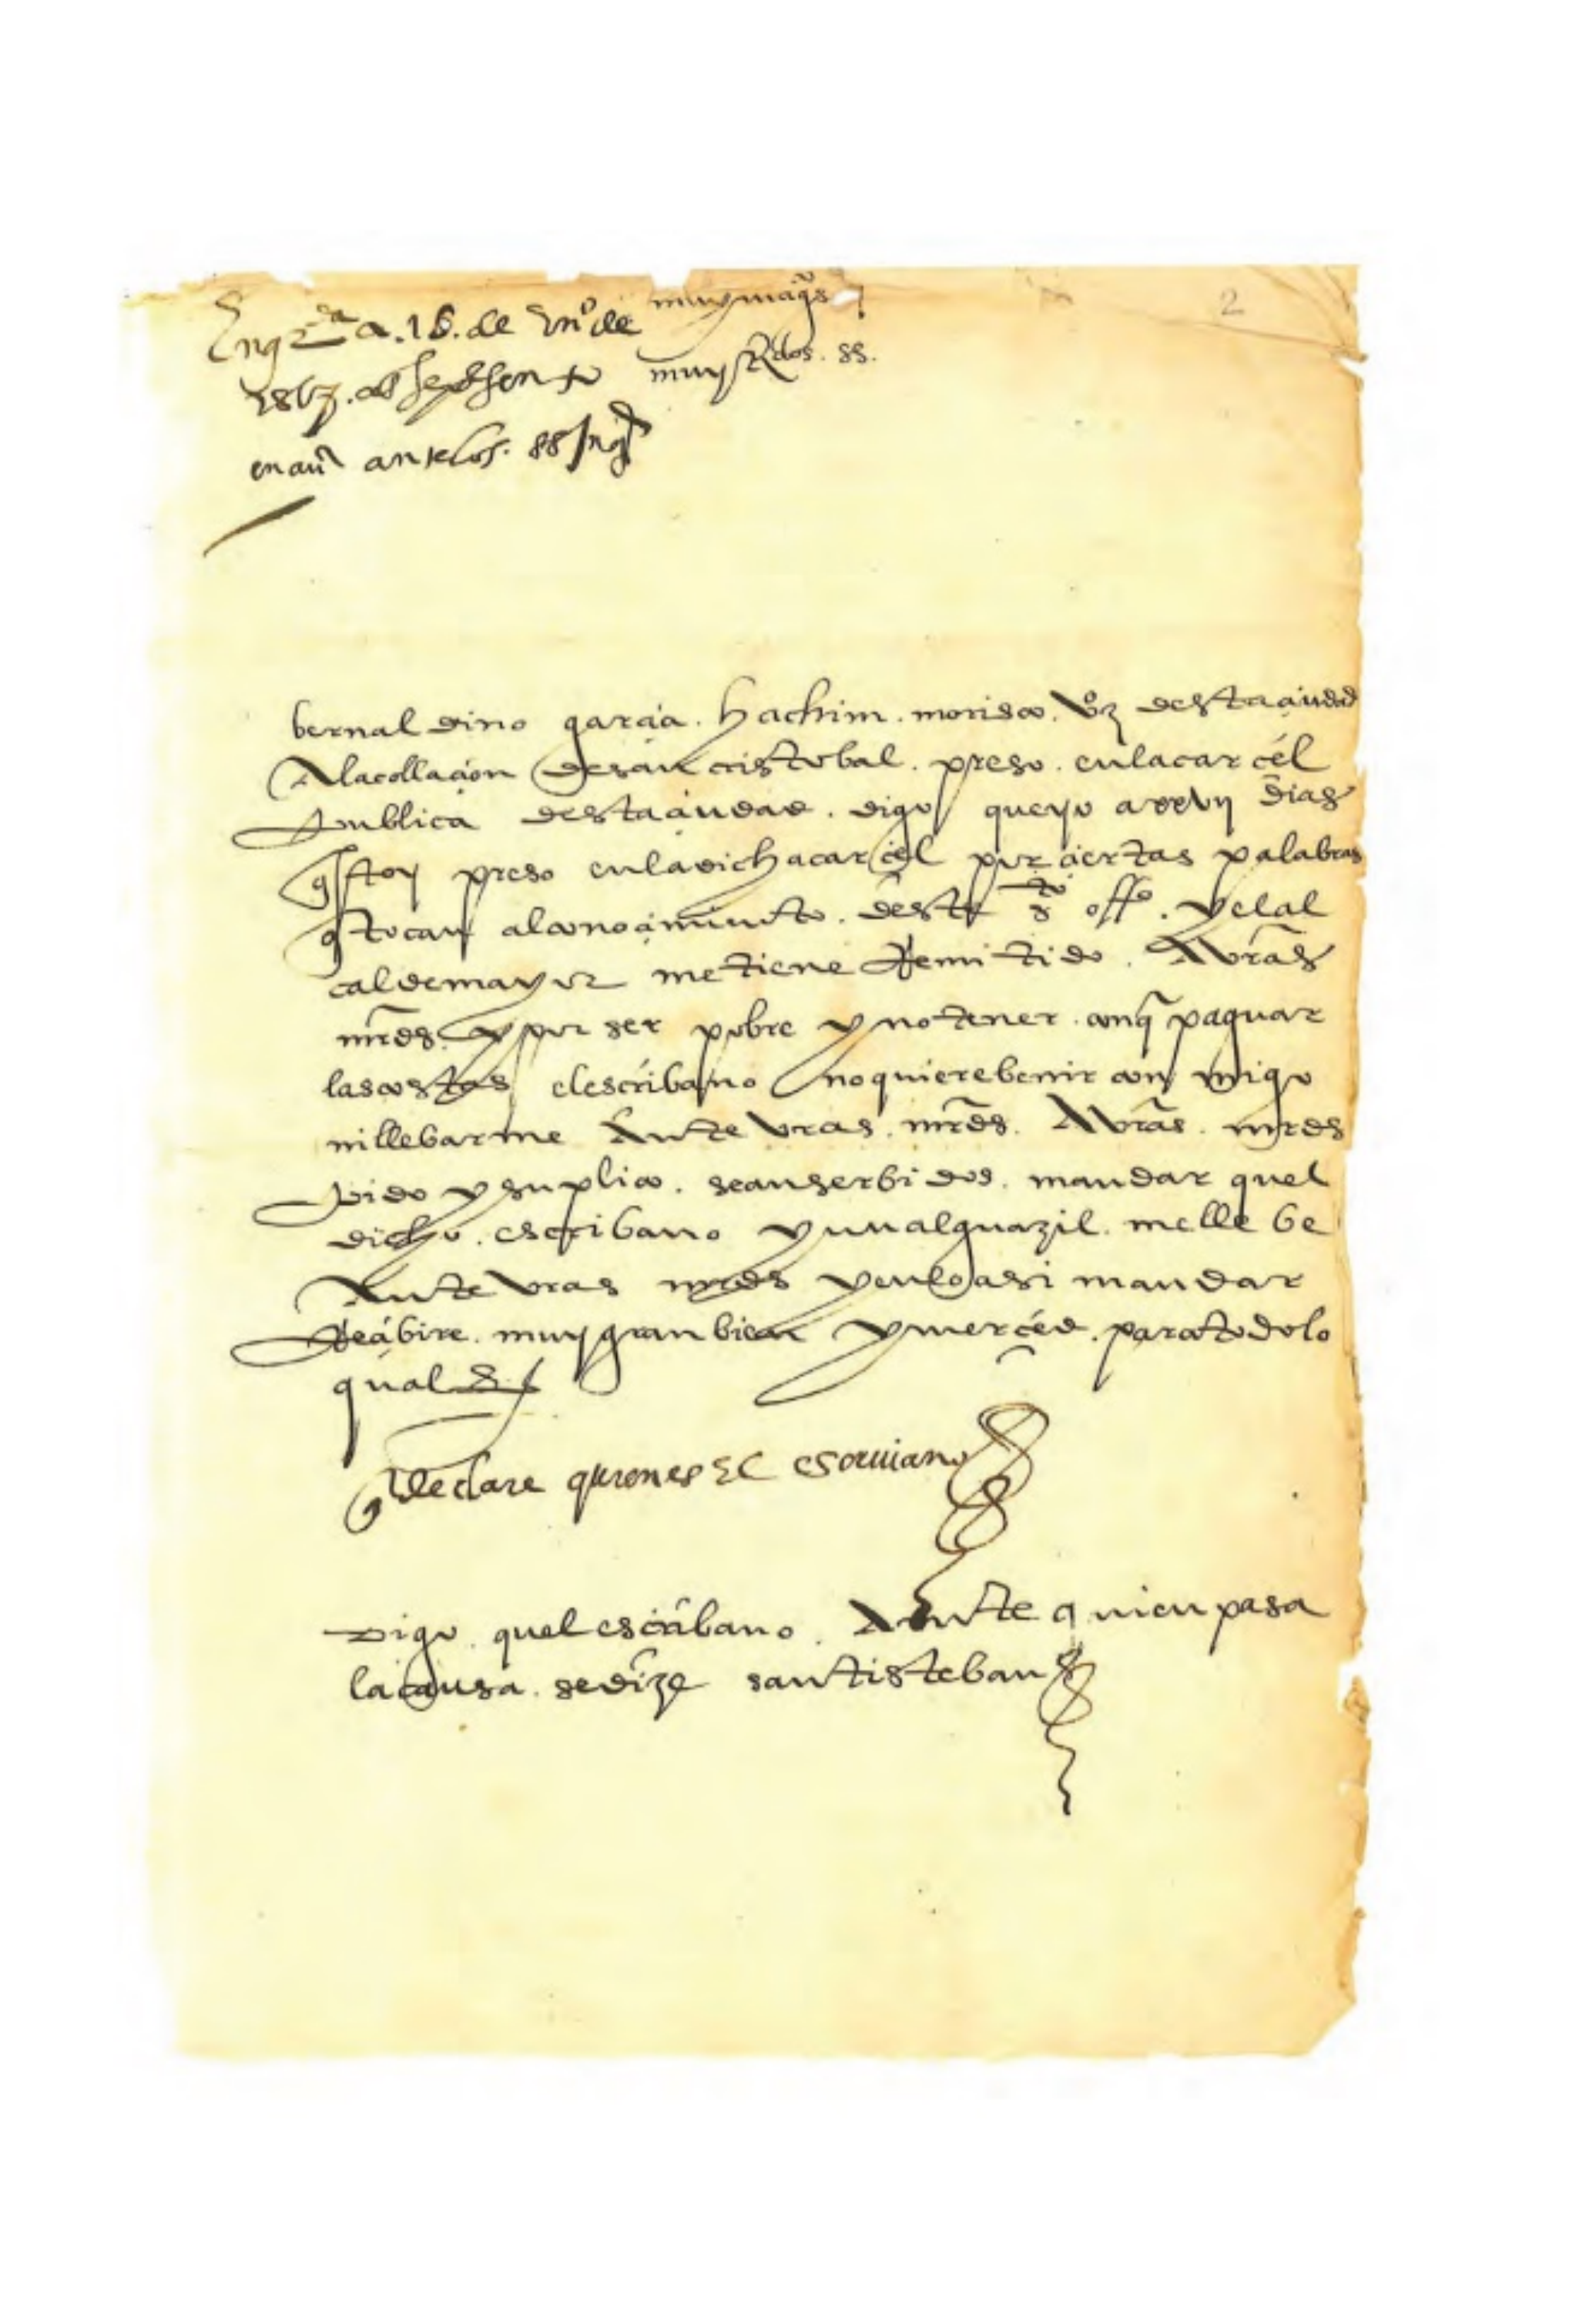 muy magcos
2
En grda a. 16. de Enº de
muy Rdos. ss.
1567. ante los. ss Inqs
bernaldino garcia. hachim. morisco. vzº desta ciudad
A la collacion de san cristobal. preso. en la carcel
publica desta ciudad. digo que yo a xxvij dias
q estoy preso en la dicha carcel por ciertas palabras
q tocan al conocimiento. deste sto offº. y el al
calde mayor me tiene Remitido. A vras
mrds. y por ser pobre y no tener. con q paguar
las costas el escribano no quiere benir con migo
ni llebarme Ante vras. mrds. A vras. mrds
pido y suplico. sean serbidos. mandar quel
dicho. escribano y un alguazil. me lle be
Ante vras mrds y en lo asi mandar
Recibire. muy gran bien y merced. para todo lo
qual &
q declare quien es El escriuano
Digo. quel escribano. Ante quien pasa
la causa. se dize santisteban